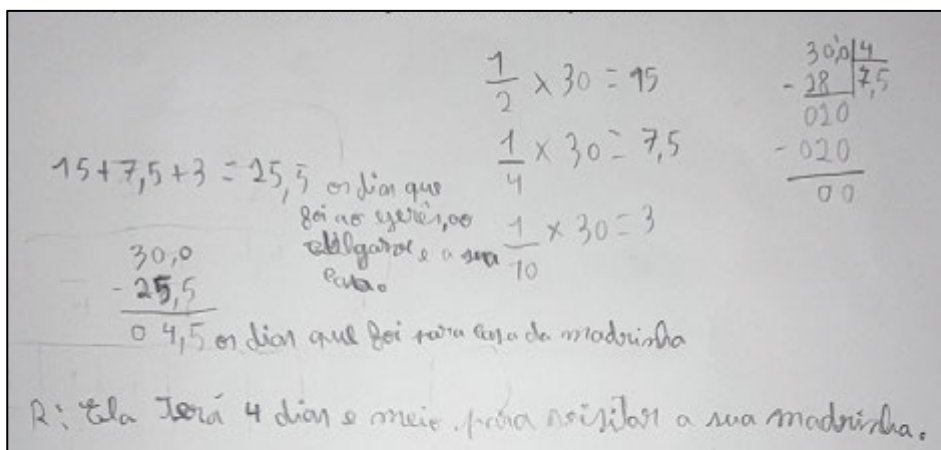 1/2 × 30 = 15
1/4 × 30 = 7,5
1/10 × 30 = 3
30,0 | 4
- 28 | 7,5
020
- 020
00
15 + 7,5 + 3 = 25,5 os dias que
foi ao gerês, ao
algarve e a sua
30,0
- 25,5
04,5 os dias que foi para casa da madrinha
R: Ela terá 4 dias e meio para visitar a sua madrinha.